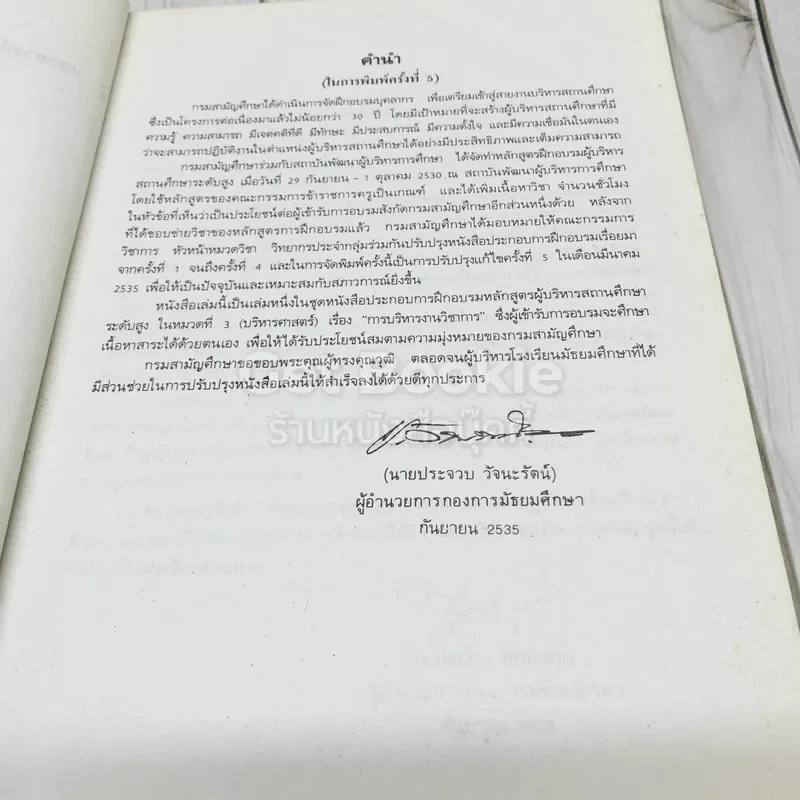 คำนำ
(ในการพิมพ์ครั้งที่ 5)
กรมสามัญศึกษาได้ดำเนินการจัดฝึกอบรมบุคลากร เพื่อเตรียมเข้าสู่สายงานบริหารสถานศึกษา
ซึ่งเป็นโครงการต่อเนื่องมาแล้วไม่น้อยกว่า 30 ปี โดยมีเป้าหมายที่จะสร้างผู้บริหารสถานศึกษาที่มี
ความรู้ ความสามารถ มีเจตคติที่ดี มีทักษะ มีประสบการณ์ มีความตั้งใจ และมีความเชื่อมั่นในตนเอง
ว่าจะสามารถปฏิบัติงานในตำแหน่งผู้บริหารสถานศึกษาได้อย่างมีประสิทธิภาพและเต็มความสามารถ
กรมสามัญศึกษาร่วมกับสถาบันพัฒนาผู้บริหารการศึกษา ได้จัดทำหลักสูตรฝึกอบรมผู้บริหาร
สถานศึกษาระดับสูง เมื่อวันที่ 29 กันยายน - 1 ตุลาคม 2530 ณ สถาบันพัฒนาผู้บริหารการศึกษา
โดยใช้หลักสูตรของคณะกรรมการข้าราชการครูเป็นเกณฑ์ และได้เพิ่มเนื้อหาวิชา จำนวนชั่วโมง
ในหัวข้อที่เห็นว่าเป็นประโยชน์ต่อผู้เข้ารับการอบรมสังกัดกรมสามัญศึกษาอีกส่วนหนึ่งด้วย หลังจาก
ที่ได้ขอบข่ายวิชาของหลักสูตรการฝึกอบรมแล้ว กรมสามัญศึกษาได้มอบหมายให้คณะกรรมการ
วิชาการ หัวหน้าหมวดวิชา วิทยากรประจำกลุ่มร่วมกันปรับปรุงหนังสือประกอบการฝึกอบรมเรื่อยมา
จากครั้งที่ 1 จนถึงครั้งที่ 4 และในการจัดพิมพ์ครั้งนี้เป็นการปรับปรุงแก้ไขครั้งที่ 5 ในเดือนมีนาคม
2535 เพื่อให้เป็นปัจจุบันและเหมาะสมกับสภาวการณ์ยิ่งขึ้น
หนังสือเล่มนี้เป็นเล่มหนึ่งในชุดหนังสือประกอบการฝึกอบรมหลักสูตรผู้บริหารสถานศึกษา
ระดับสูง ในหมวดที่ 3 (บริหารศาสตร์) เรื่อง "การบริหารงานวิชาการ" ซึ่งผู้เข้ารับการอบรมจะศึกษา
เนื้อหาสาระได้ด้วยตนเอง เพื่อให้ได้รับประโยชน์สมตามความมุ่งหมายของกรมสามัญศึกษา
กรมสามัญศึกษาขอขอบพระคุณผู้ทรงคุณวุฒิ ตลอดจนผู้บริหารโรงเรียนมัธยมศึกษาที่ได้
มีส่วนช่วยในการปรับปรุงหนังสือเล่มนี้ให้สำเร็จลงได้ด้วยดีทุกประการ
Get Bookie
ร้านหนังสือบุ๊คกี้
(นายประจวบ วัจนะรัตน์)
ผู้อำนวยการกองการมัธยมศึกษา
กันยายน 2535